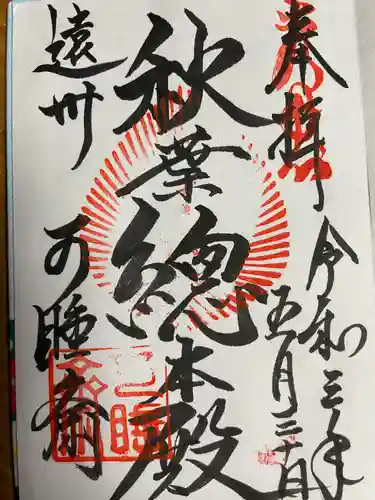 奉拝
令和三年
五月三十日
秋葉總本殿
遠州
可睡齋